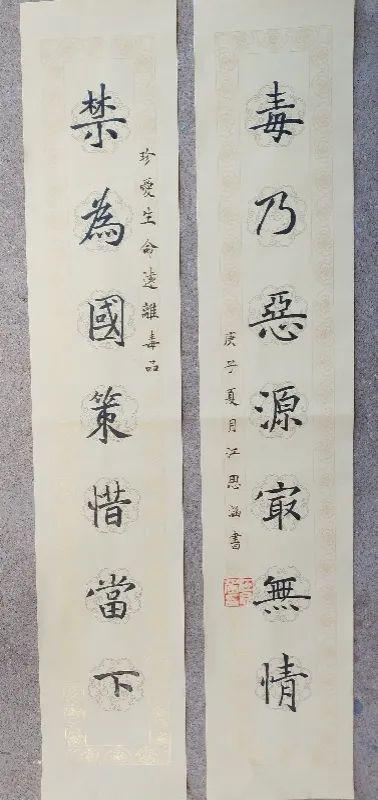 毒乃惡源寂無情
庚子夏月江思涵書
珍愛生命遠離毒品
禁為國策惜當下